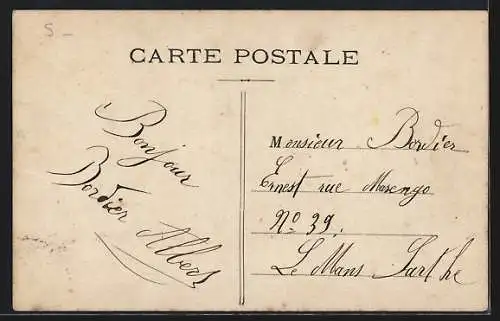 5-
CARTE POSTALE
Bonjour
Bordier Albert
Monsieur Bordier
Ernest rue Marengo
No 39.
Le Mans Sarthe